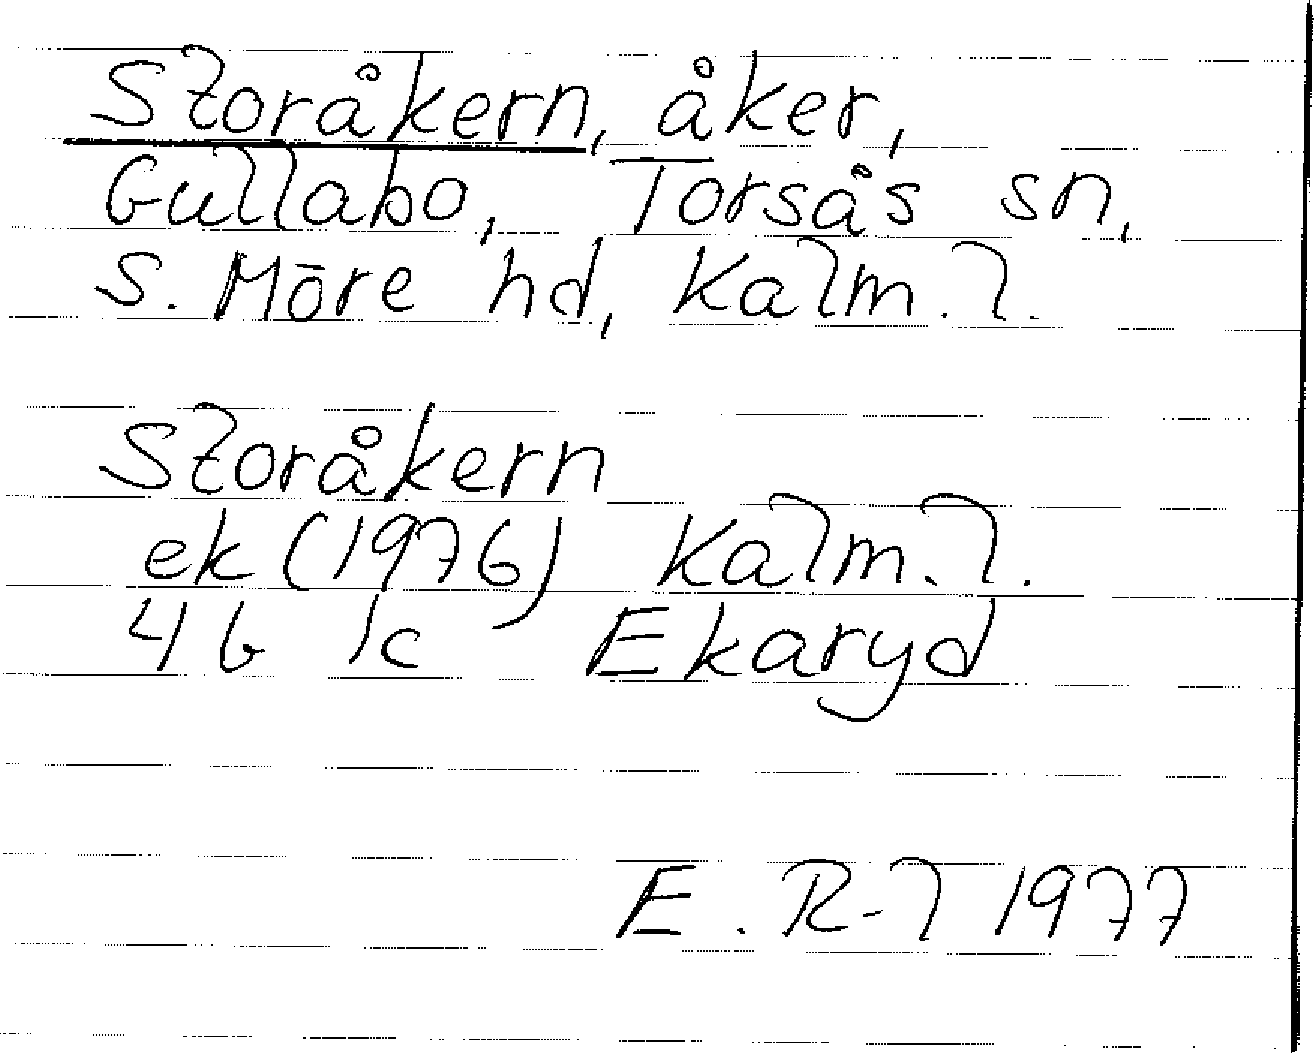 Storåkern, åker,
Gullabo, Torsås sn,
S. Möre hd, Kalm. l.
Storåkern
ek (1976) Kalm. l.
4G 1c Ekaryd
E. R-l 1977